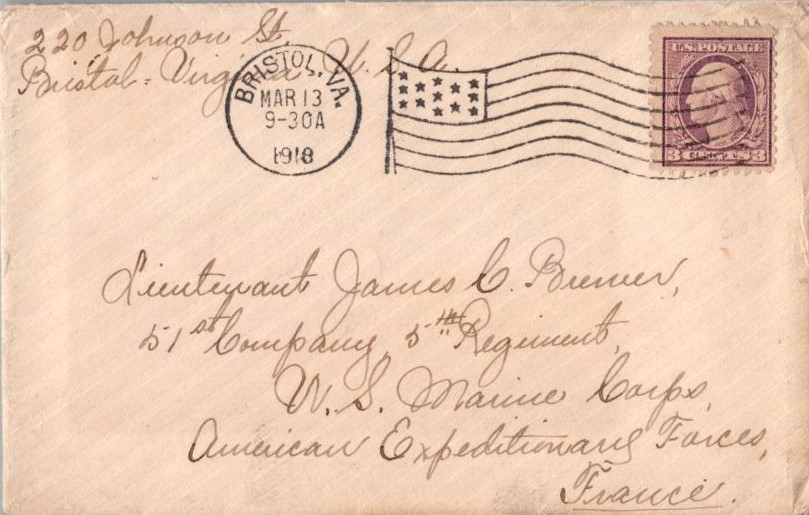 220, Johnson St.
Bristol - Virginia U. S. A.
BRISTOL, VA.
MAR 13
9-30A
1918
U.S. POSTAGE
3 CENTS 3
Lieutenant James C. Brewer,
51st Company, 5th Regiment,
U. S. Marine Corps,
American Expeditionary Forces,
France.